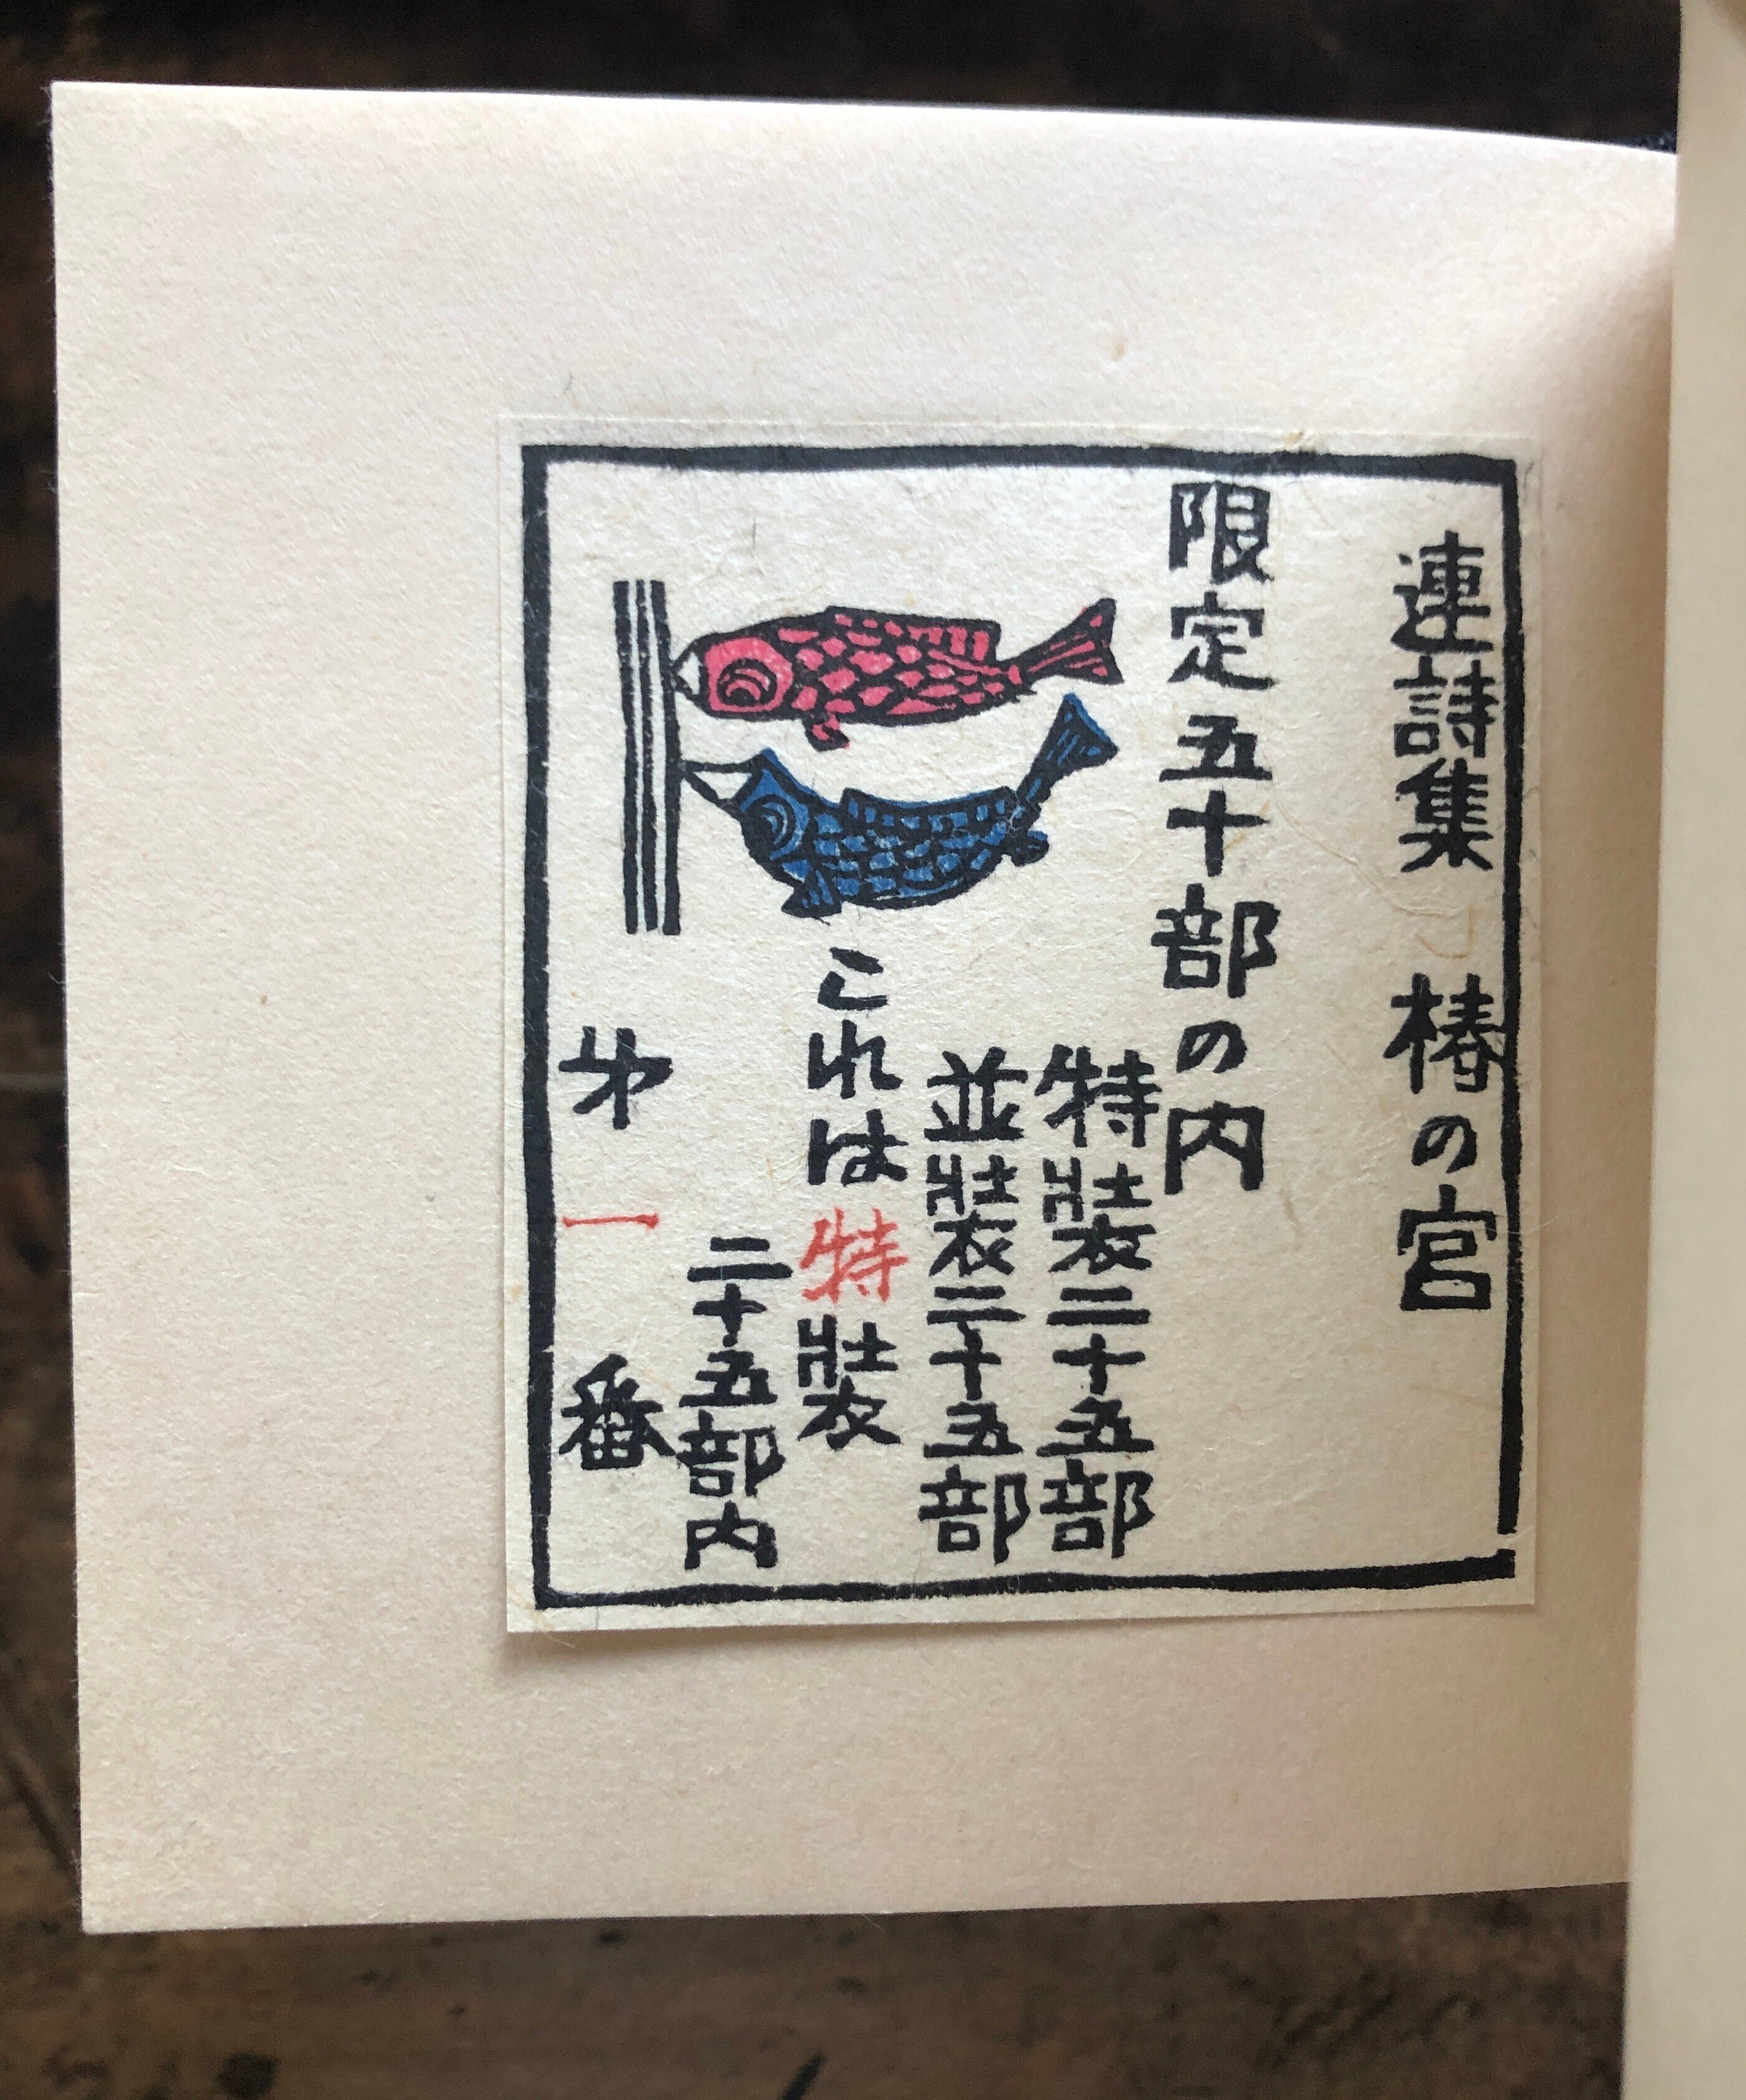 連詩集 椿の宮
限定五十部の内
特装二十五部
並装二十五部
これは特装
二十五部内
㐧一番